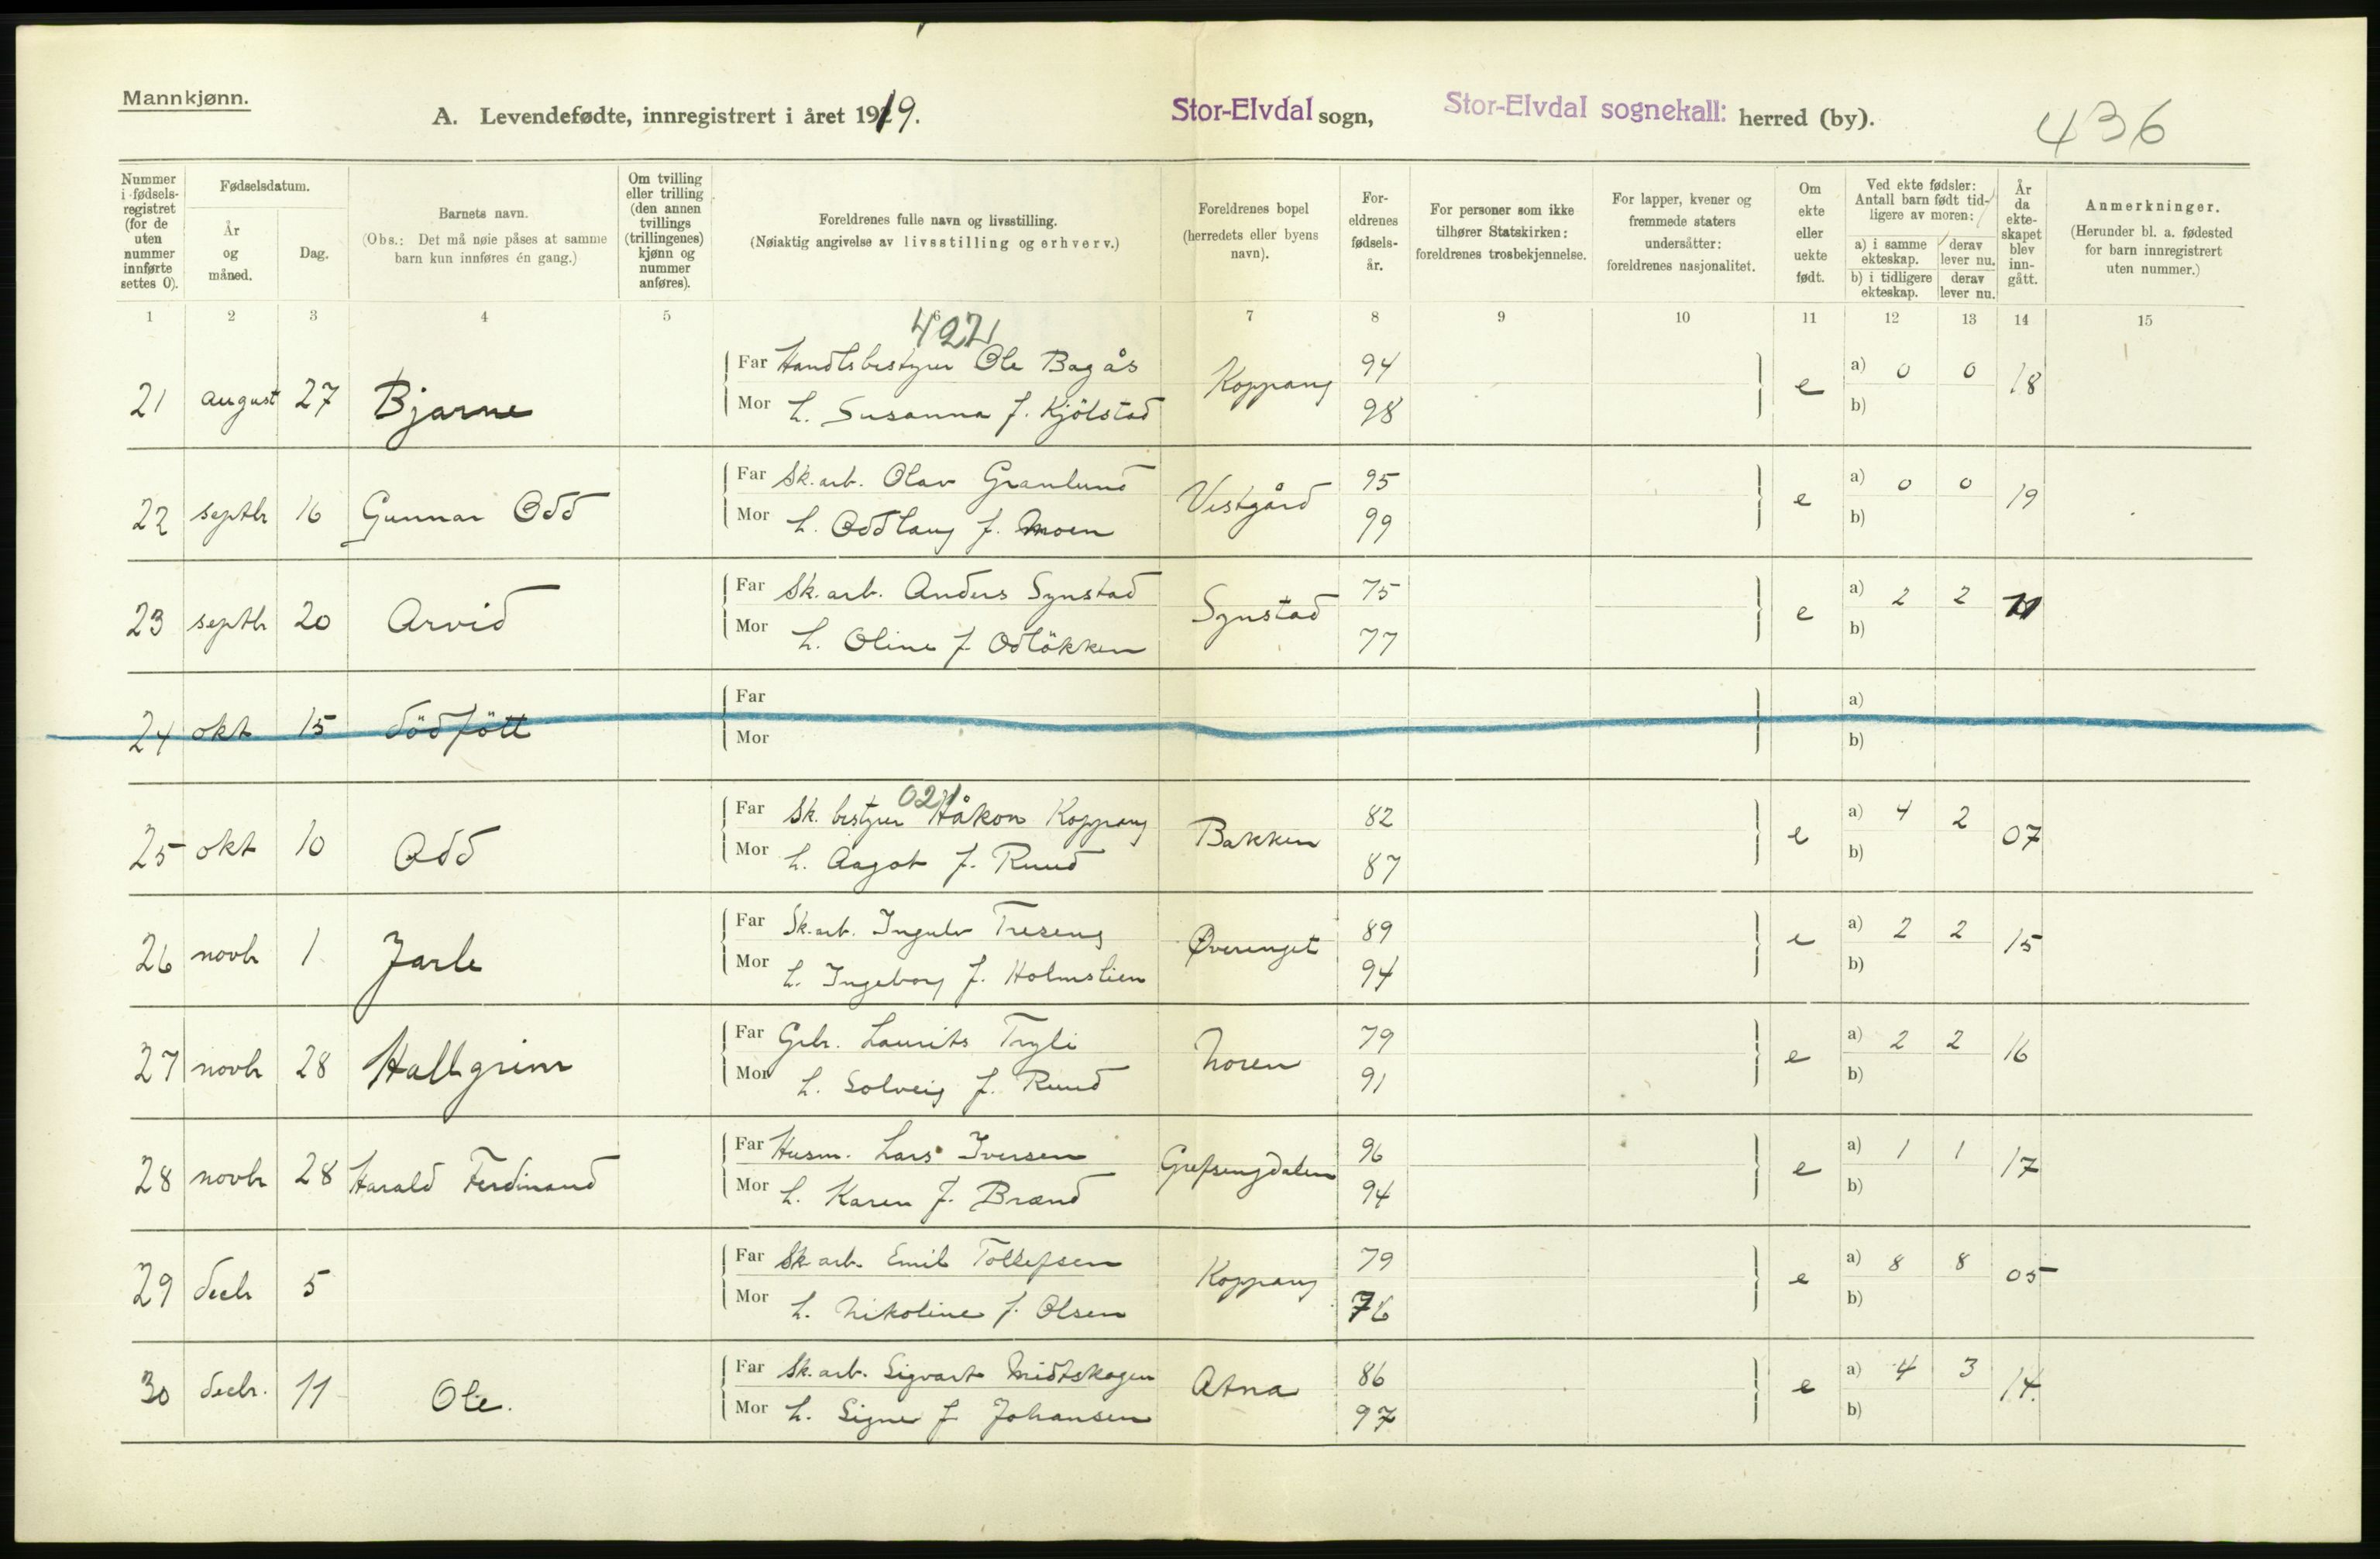 Mannkjønn.
A. Levendefødte, innregistrert i året 1919.
Stor-Elvdal sogn, Stor-Elvdal sognekall: herred (by).
436
Nummer i fødselsregistret (for de uten nummer innførte settes 0).
Fødselsdatum.
År og måned.
Dag.
Barnets navn.
(Obs.: Det må nøie påses at samme barn kun innføres én gang.)
Om tvilling eller trilling (den annen tvillings (trillingenes) kjønn og nummer anføres).
Foreldrenes fulle navn og livsstilling.
(Nøiaktig angivelse av livsstilling og erhverv.)
Foreldrenes bopel (herredets eller byens navn).
Foreldrenes fødselsår.
For personer som ikke tilhører Statskirken: foreldrenes trosbekjennelse.
For lapper, kvener og fremmede staters undersåtter: foreldrenes nasjonalitet.
Om ekte eller uekte født.
Ved ekte fødsler: Antall barn født tidligere av moren:
a) i samme ekteskap. derav lever nu.
b) i tidligere ekteskap. derav lever nu.
År da ekteskapet blev inngått.
Anmerkninger.
(Herunder bl. a. fødested for barn innregistrert uten nummer.)
1 2 3 4 5 6 7 8 9 10 11 12 13 14 15
Far Handlsbestyrer Ole Bagås 94 a) 0 0
21 august 27 Bjarne Koppang e 18
Mor h. Susanna f. Kjölstad 98 b)
Far Sk. arb. Olav Granlund 95 a) 0 0
22 septbr 16 Gunnar Odd Vestgård e 19
Mor h. Oddlaug f. Moen 99 b)
Far Sk. arb. Anders Synstad 75 a) 2 2
23 septbr 20 Arvid Synstad e 11
Mor h. Oline f. Odlökken 77 b)
Far a)
24 okt 15 dödfött
Mor b)
021
Far Sk. bestyrer Håkon Koppang 82 a) 4 2
25 okt 10 Odd Bakken e 07
Mor h. Aagot f. Ruud 87 b)
Far Sk. arb. Ingulv Treseng 89 a) 2 2
26 novbr 1 Jarle Øverenget e 15
Mor h. Ingeborg f. Holmslien 94 b)
Far Gbr. Laurits Tryli 79 a) 2 2
27 novbr 28 Hallgrim Noren e 16
Mor h. Solveig f. Ruud 91 b)
Far Husm. Lars Iversen 96 a) 1 1
28 novbr 28 Harald Ferdinand Grefsengdalen e 17
Mor h. Karen f. Brænd 94 b)
Far Sk arb. Emil Tollefsen 79 a) 8 8
29 decbr 5 Koppang e 05
Mor h. Nikoline f. Olsen 76 b)
Far Sk. arb. Sigvart Midtskogen 86 a) 4 3
30 decbr. 11 Ole. Atna e 14.
Mor h. Signe f Johansen 97 b)